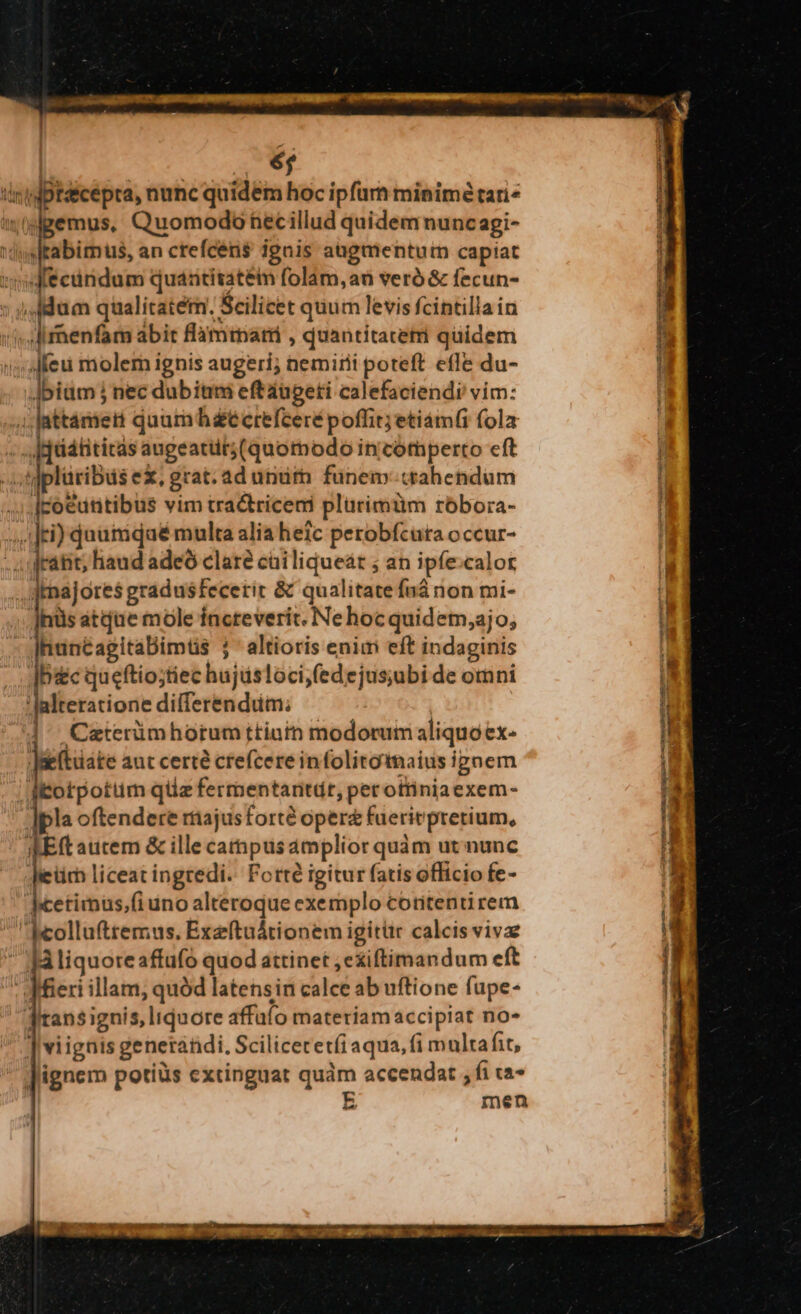 65
præcepta, nunc quidem hoc ipſum minimè tari-
gemus, Quomodo nec illud quidem nunc agi-
tabimus, an creſcens ignis augmentum capiat
ſecundum quantitatem ſolam, an verò & ſecun-
dum qualitatem. Scilicet quum levis ſcintilla in
immenſam abit flammam, quantitatem quidem
ſeu molem ignis augeri; nemini poteſt eſſe du-
bium; nec dubium eſt augeri calefaciendi vim:
attamen quum hæc creſcere poſſit; etiamſi ſola
quantitas augeatur; (quomodo in comperto eſt
pluribus ex. grat. ad unum funem trahendum
coëuntibus vim tractricem plurimùm robora-
ri) quumque multa alia heîc perobſcura occur-
rant, haud adeò clarè cui liqueat; an ipſe calor
majores gradus fecerit & qualitate ſuâ non mi-
nùs atque mole increverit. Ne hoc quidem, ajo,
nunc agitabimus; altioris enim eſt indaginis
hæc queſtio; nec hujus loci, ſed ejus, ubi de omni
alteratione differendum.
Cæterùm horum trium modorum aliquo ex-
æſtuare aut certè creſcere inſolito majus ignem
tot potum quæ fermentantur, per omnia exem-
pla oſtendere majus fortè operæ fuerit pretium.
Eſt autem & ille campus amplior quàm ut nunc
eum liceat ingredi. Fortè igitur ſatis officio fe-
cerimus, ſi uno alteroque exemplo contenti rem
colluſtremus. Exæſtuationem igitur calcis vivæ
à liquore affuſo quod attinet, exiſtimandum eſt
fieri illam, quòd latens in calce ab uſtione ſupe-
rans ignis, liquore affuſo materiam accipiat no-
vi ignis generandi. Scilicet etſi aqua, ſi multa ſit,
ignem potiùs extinguat quàm accendat, ſi ta-
E men